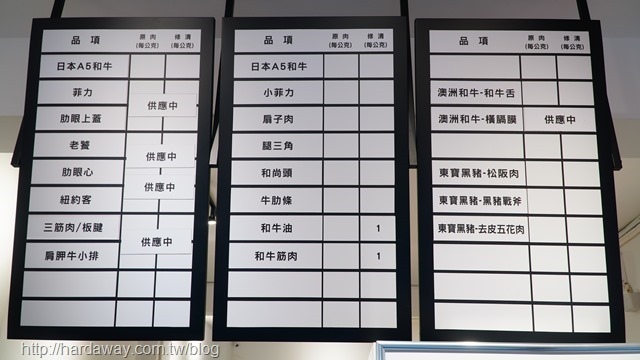 品項 原肉(每公克) 修清(每公克)
日本A5和牛
菲力
供應中
肋眼上蓋
老饕
供應中
肋眼心
供應中
紐約客
三筋肉/板腱
供應中
肩胛牛小排
品項 原肉(每公克) 修清(每公克)
日本A5和牛
小菲力
扇子肉
腿三角
和尚頭
牛肋條
和牛油 1
和牛筋肉 1
品項 原肉(每公克) 修清(每公克)
澳洲和牛-和牛舌
澳洲和牛-橫膈膜 供應中
東寶黑豬-松阪肉
東寶黑豬-黑豬戰斧
東寶黑豬-去皮五花肉
http://hardaway.com.tw/blog